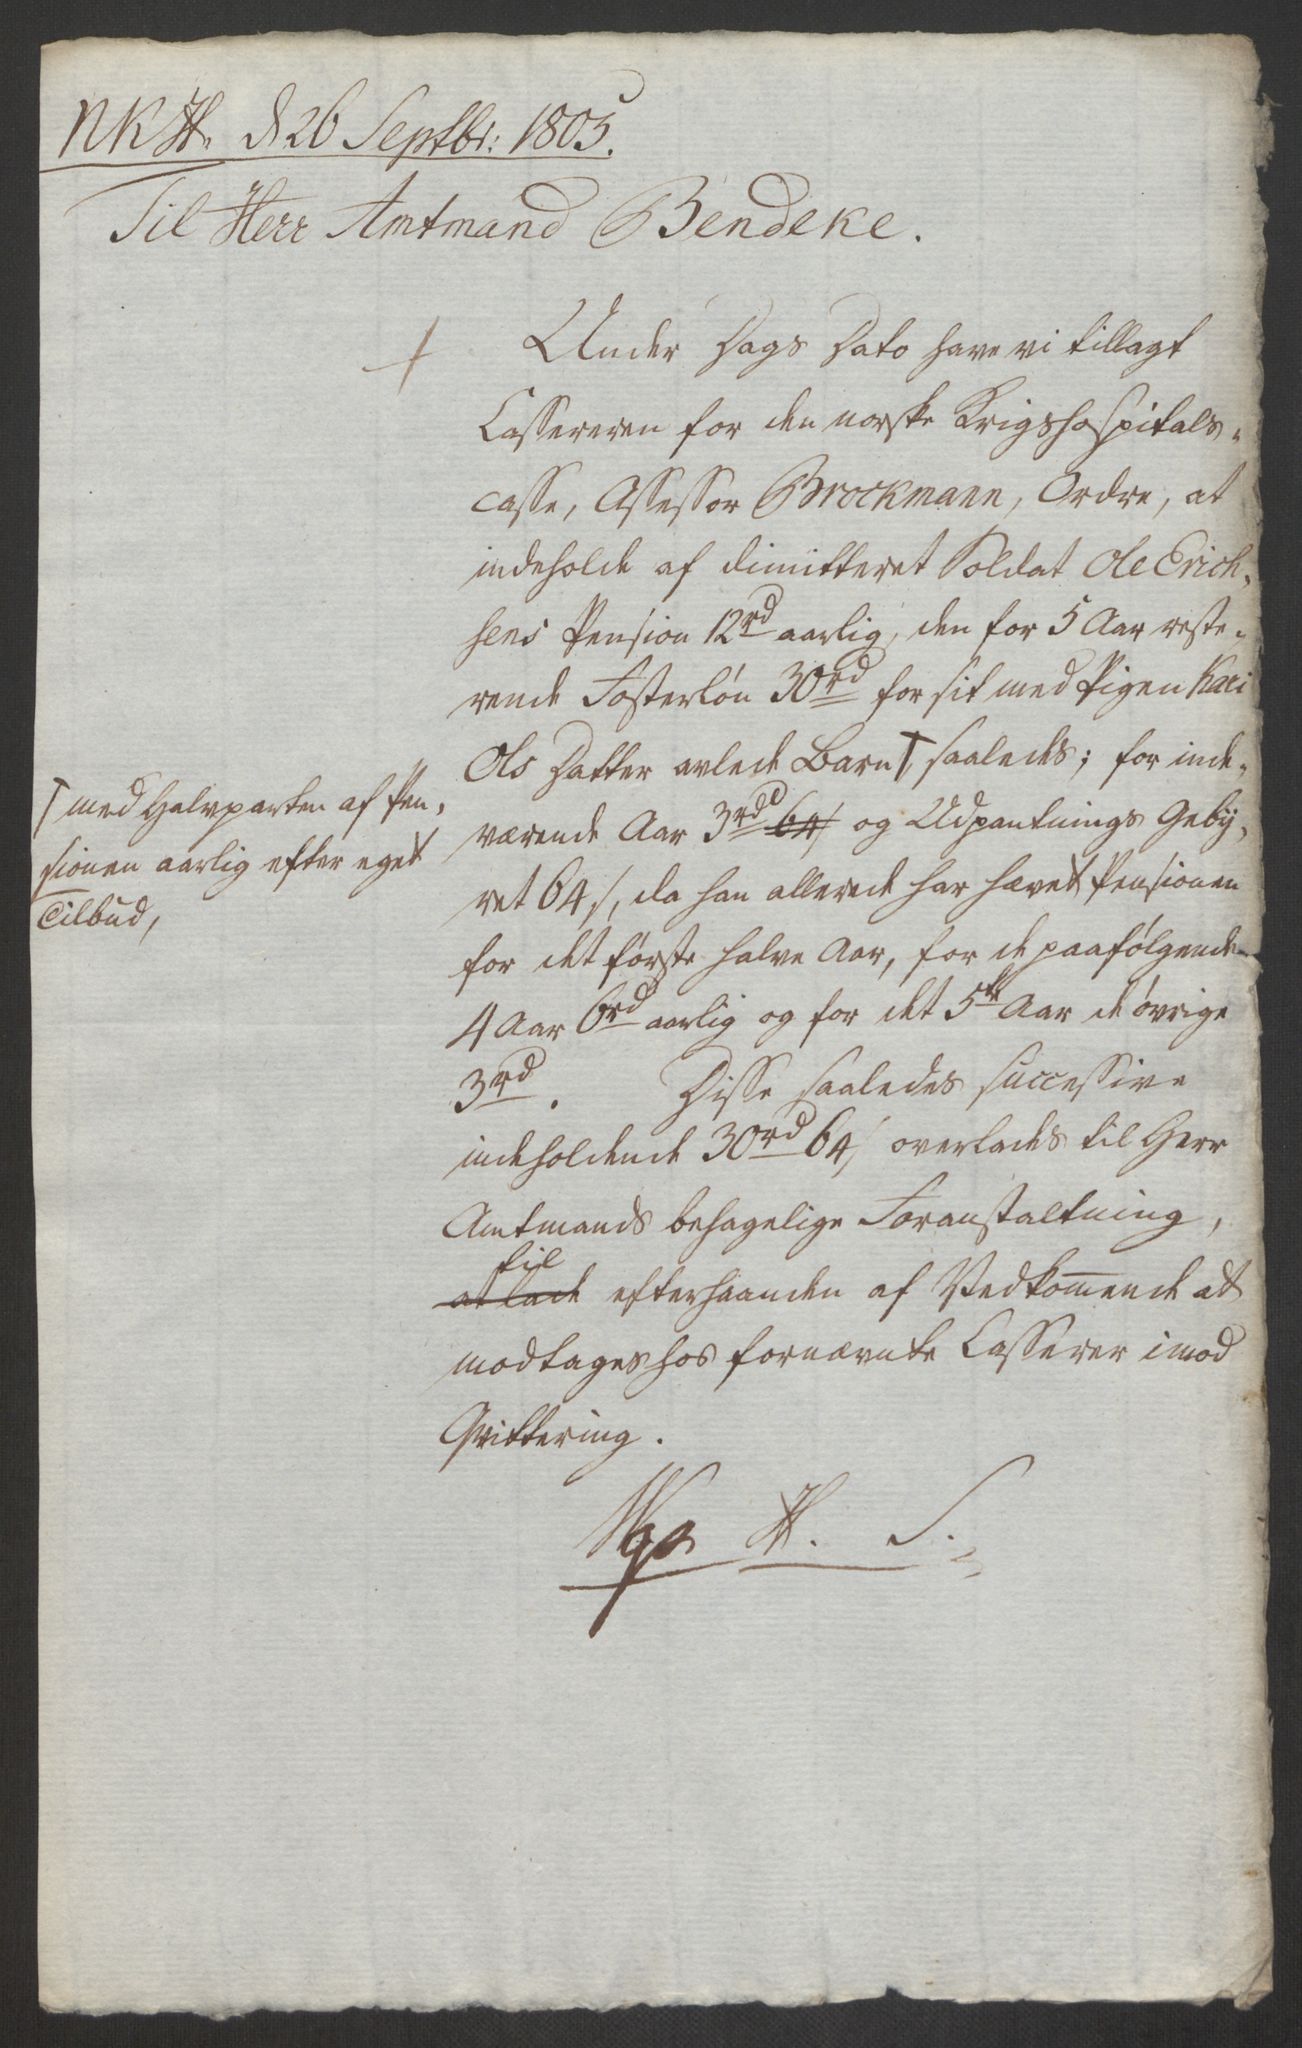 NKH. d 26 Septbr: 1805.
Til Herr Amtmand Bendeke.
Under Dags Dato have vi tillagt
Cassereren for den norske Krigshospitals-
casse, Assessor Brockmann, Ordre, at
indeholde af dimitteret Soldat Ole Erich-
sens Pension 12 rd aarlig, den for 5 Aar reste-
rende Fosterløn 30 rd for sit med Pigen Kari
Ols Datter avlede Barn † saaledes; for inde-
værende Aar 3 rd 64 s og Udpantnings Geby-
ret 64 s, da han allerede har hævet Pensionen
for det første halve Aar, for de paafølgende
4 Aar 6 rd aarlig og for det 5te Aar de øvrige
3 rd. Disse saaledes successive
indeholdende 30 rd 64 s overlades til Herr
Amtmands behagelige Foranstaltning,
til
at lade efterhaanden af Vedkommende at
modtages hos fornævnte Casserer imod
Qvittering.
† med Halvparten af Pen-
sionen aarlig efter eget
Tilbud,
H. S.